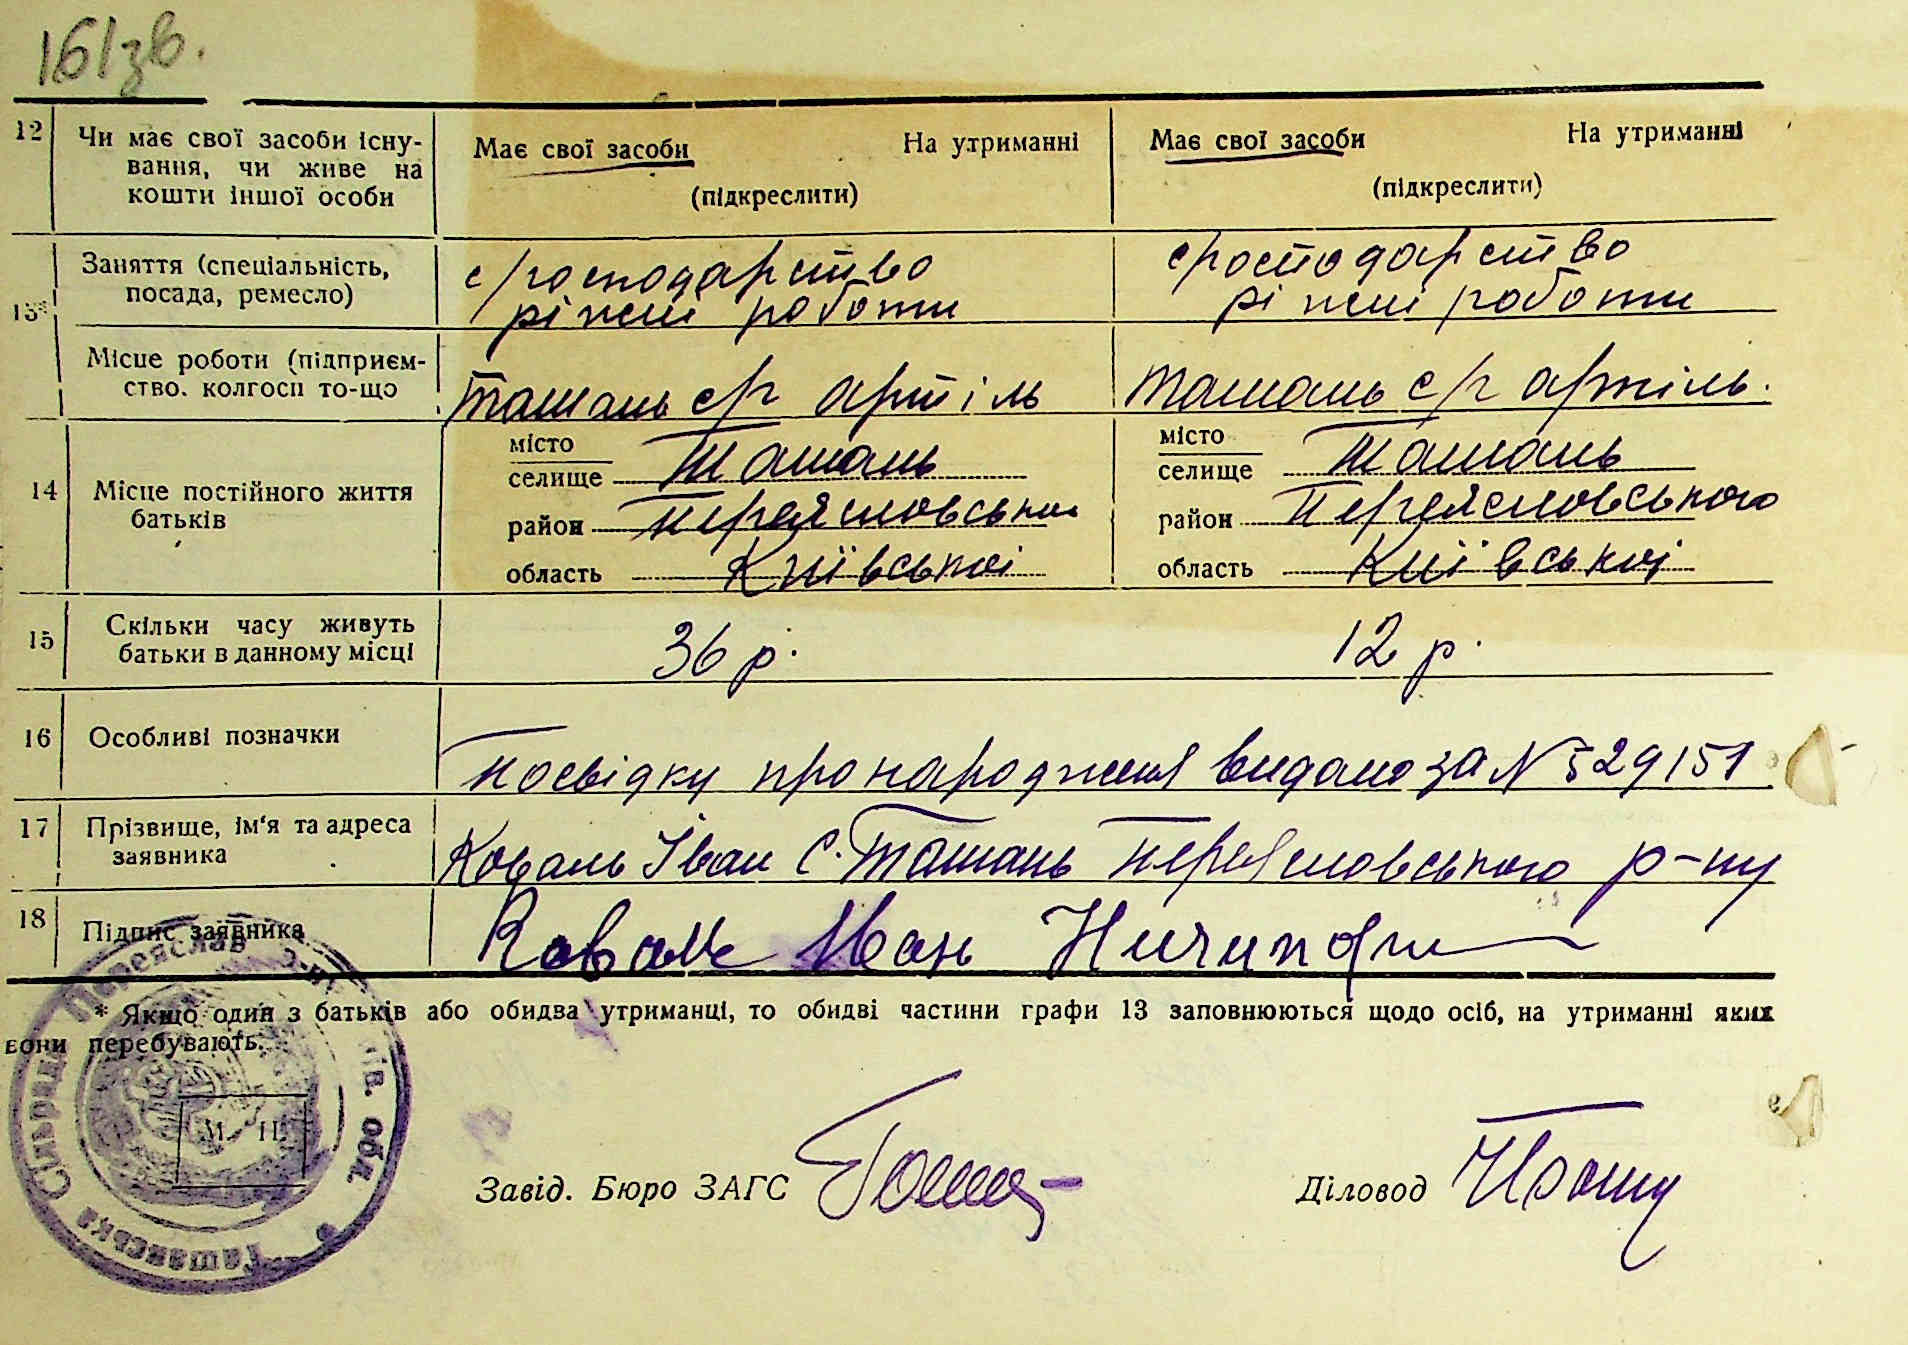 161зв.
12 Чи має свої засоби існу-
вання, чи живе на
кошти іншої особи
Має свої засоби На утриманні
(підкреслити)
Має свої засоби На утриманні
(підкреслити)
13* Заняття (спеціальність,
посада, ремесло)
с/господарство
ріжні роботи
с/господарство
ріжні роботи
Місце роботи (підприєм-
ство. колгосп то-що
Ташань с/г артіль
Ташань с/г артіль.
14 Місце постійного життя
батьків
місто
селище Ташань
район Переяславського
область Київської
місто
селище Ташань
район Переяславського
область Київської
15 Скільки часу живуть
батьки в данному місці
36 р.
12 р.
16 Особливі позначки
Посвідку про народження видано за №529151
17 Прізвище, ім'я та адреса
заявника
Коваль Іван с. Ташань Переяславського р-ну
18 Підпис заявника
Коваль Иван Ничипор
* Якщо один з батьків або обидва утриманці, то обидві частини графи 13 заповнюються щодо осіб, на утриманні яких
вони перебувають.
Ташанська Сільрада Переяслав обл.
М. П.
Завід. Бюро ЗАГС
Діловод